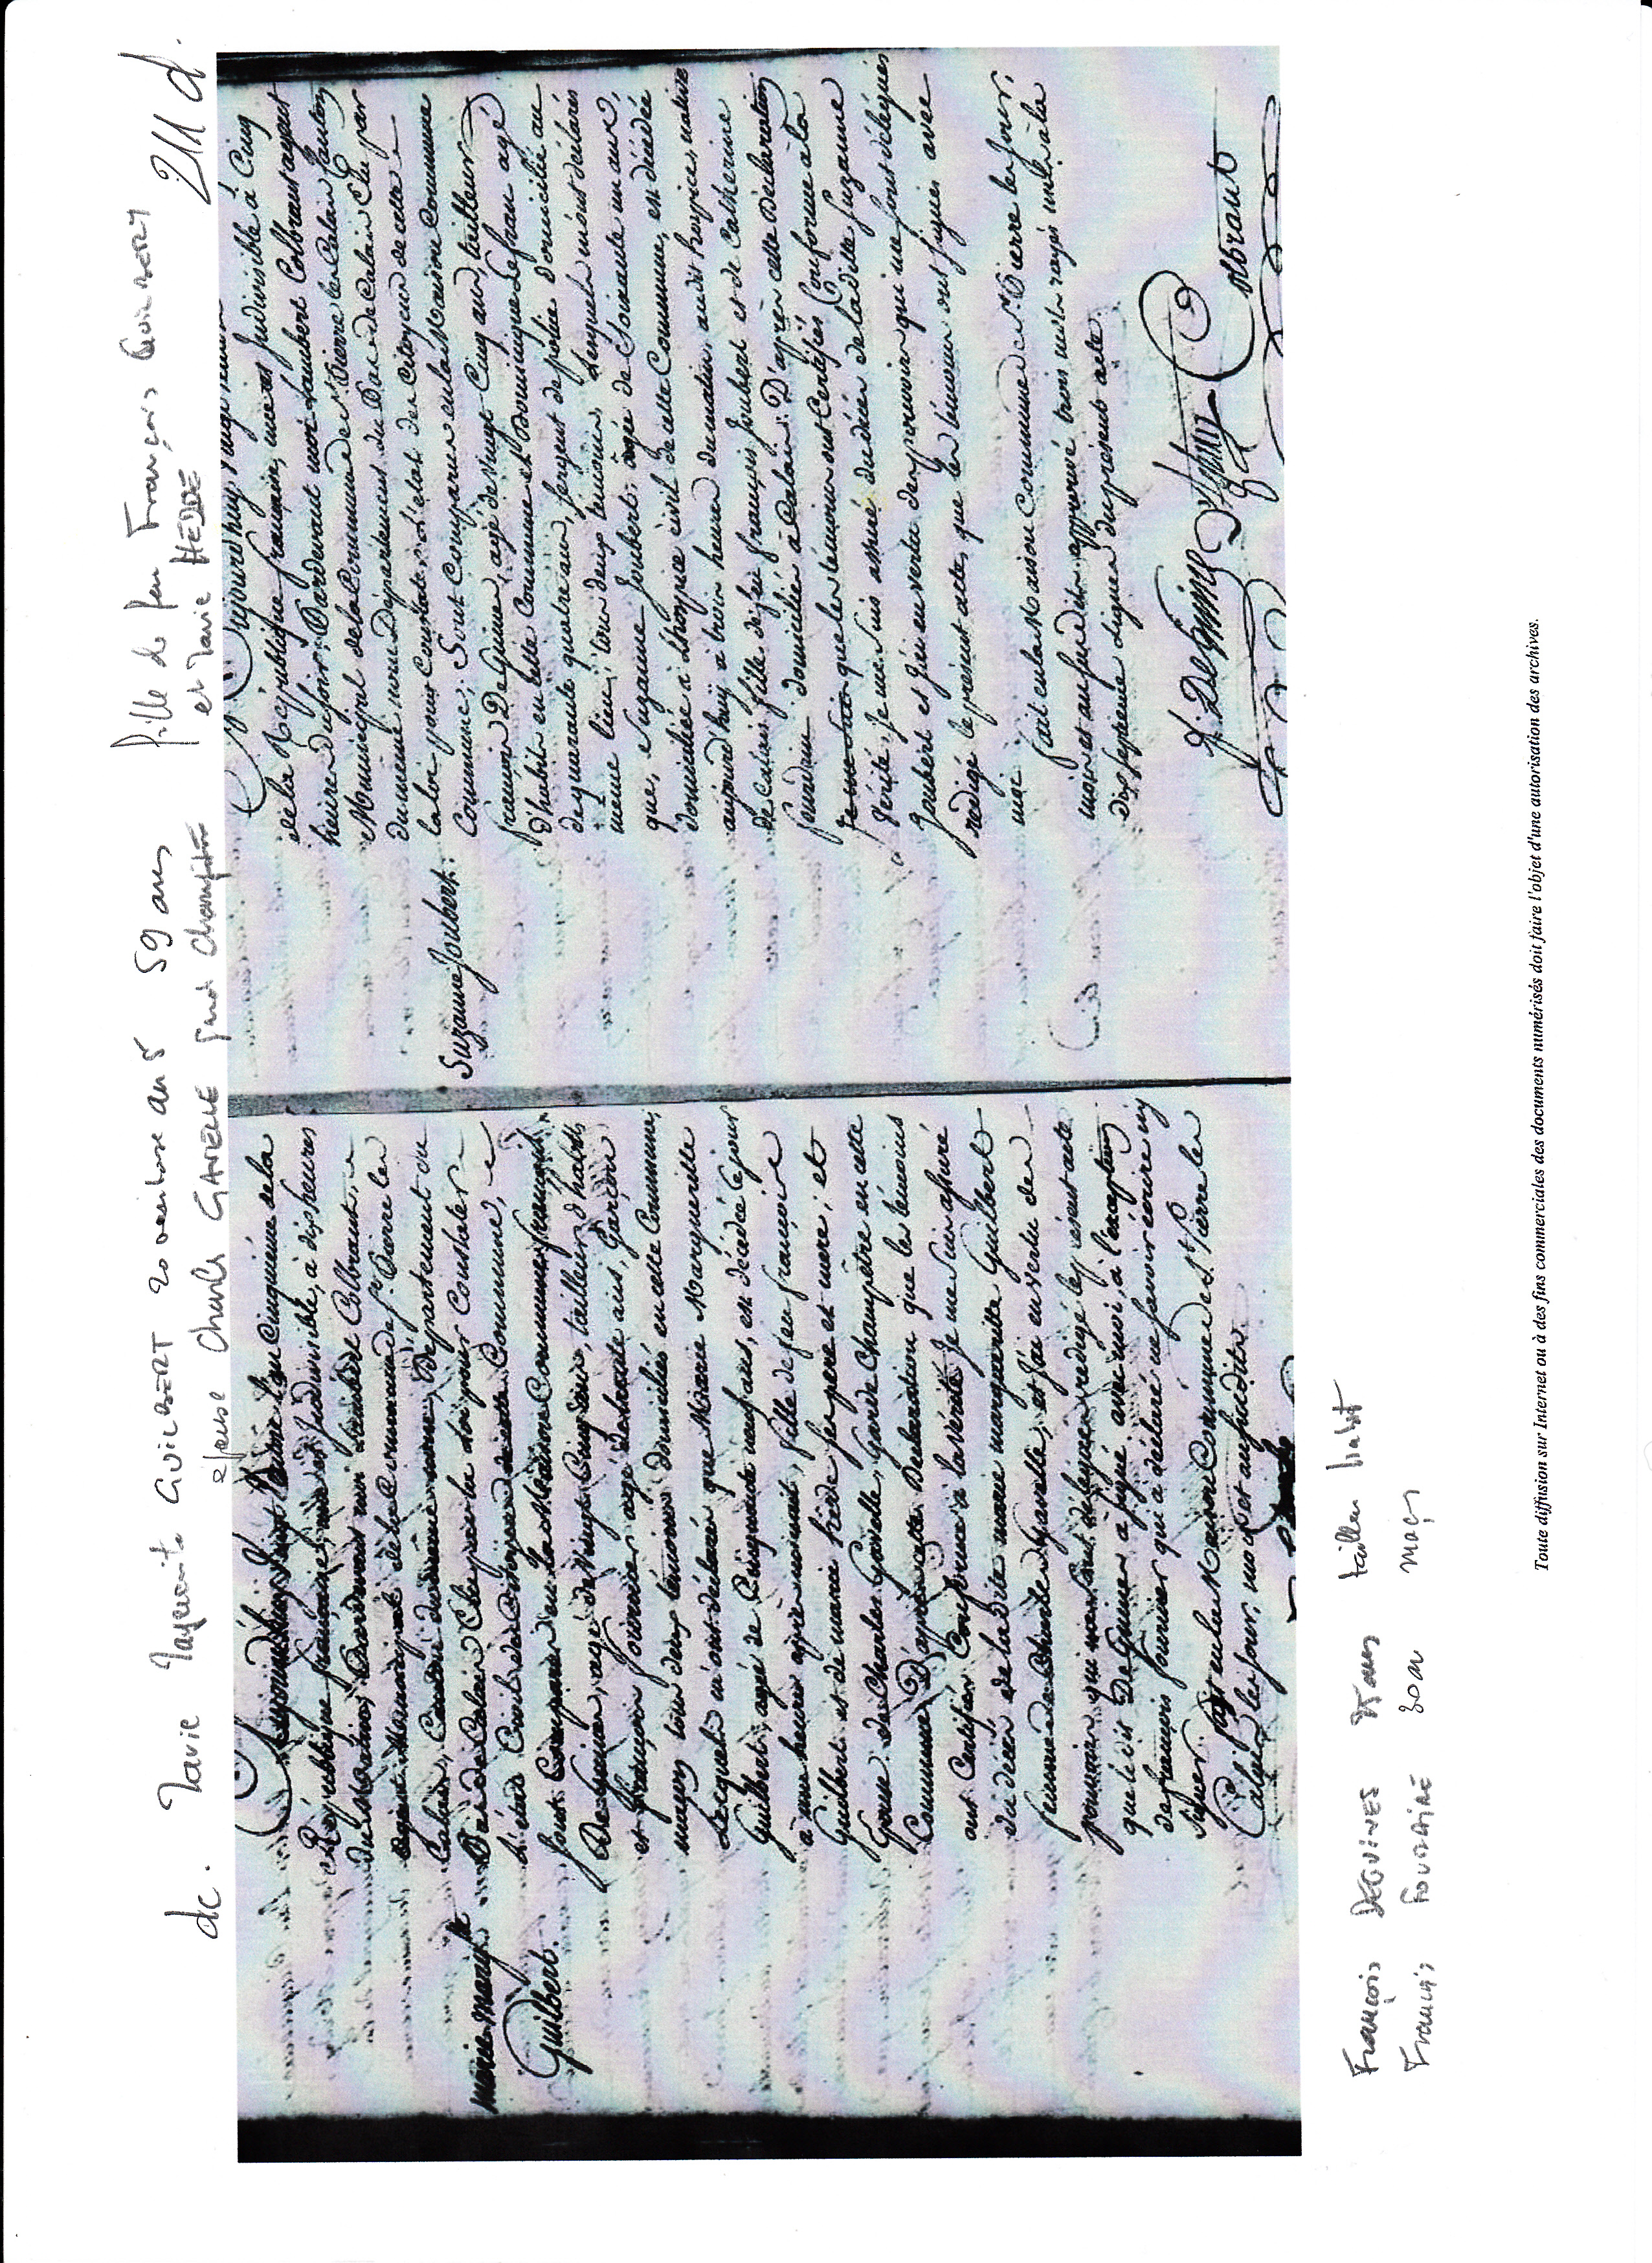 dc. Marie Marguerite GUILBERT 20 ventose an 5 59 ans fille de feu François GUILBERT
épouse Charles GAVELLE garde champêtre et Marie HEDDE
211 d.
Marie Marg.te
Guilbert.
Aujourd'huy Vingt Ventose l'an Cinquième de la
République française, une et Indivisible, à dix heures
du Matin, Pardevant moi Lambert Colbraut,
agent Municipal de la Commune de St. Pierre les
Calais, Canton du même nom, Département du
Pas de Calais Elu par la loi pour Constater
l'état Civil des Citoyens de cette Commune,
Sont Comparus en la Maison Commune françois
De Guines, agé de Vingt Cinq ans, tailleur d'habits
et françois fournier agé de trente ans, Garçon
maçon tous deux témoins domiciliés en cette Commune,
Lesquels m'ont déclaré que Marie Marguerite
Guilbert, agée de Cinquante neuf ans, est décédée ce jour
à une heure après minuit, fille de feu françois
Guilbert et de marie hedde ses pere et mere, et
Epouse de Charles Gavelle, Garde Champêtre en cette
Commune. D'après cette Déclaration que les témoins
ont Certifiée Conforme à la Vérité, Je me suis assuré
du décès de ladite marie marguerite Guilbert
femme de Charles Gavelle, et J'ai en vertu des
pouvoirs qui me sont délégués, redigé le présent acte
que ledit De Guines a signé avec moi, à l'exception
de françois fournier qui a déclaré ne savoir écrire ny
signer. Fait en la Maison Commune de St. Pierre les
Calais les jour, mois et an susdits.
Suzanne Joubert.
Aujourd'huy,
de la République française, une et Indivisible à Cinq
heures du soir; Pardevant moi Lambert Colbraut agent
Municipal de la Commune de St. Pierre les Calais Canton
du même nom Département du Pas de Calais Elu par
la loi pour Constater l'état des Citoyens de cette
Commune; Sont Comparus en la Maison Commune
françois De Guines, agé de Vingt Cinq ans, tailleur
d'habits en cette Commune et Dominique Lefran agé
de quarante quatre ans, sergent de police domicilié au
meme lieu; tous deux temoins, Lesquels m'ont déclaré
que, Suzanne Joubert; agée de Soixante un ans,
domiciliée à L'hospice Civil de cette Commune, est décédée
aujourd'huy à trois heures du matin, audit hospice, native
de Calais, fille de feu françois Joubert et de Catherine
domiciliés à Calais. D'après cette Déclaration
que les témoins ont Certifiés Conforme à la
Vérité, Je me suis assuré du décès de ladite Suzanne
Joubert et J'ai en vertu des pouvoirs qui me sont délégués
redigé le présent acte, que les témoins ont signés avec
moi. fait en la Maison Commune de St. Pierre les jour,
mois et an susdits, approuvé trois mots rayés nuls à la
dix septieme lignes du présent acte.
f. DeGuines
Colbraut
François DEGUINES 25 ans tailleur habit
François FOURNIER 30 ans maçon
Toute diffusion sur Internet ou à des fins commerciales des documents numérisés doit faire l'objet d'une autorisation des archives.